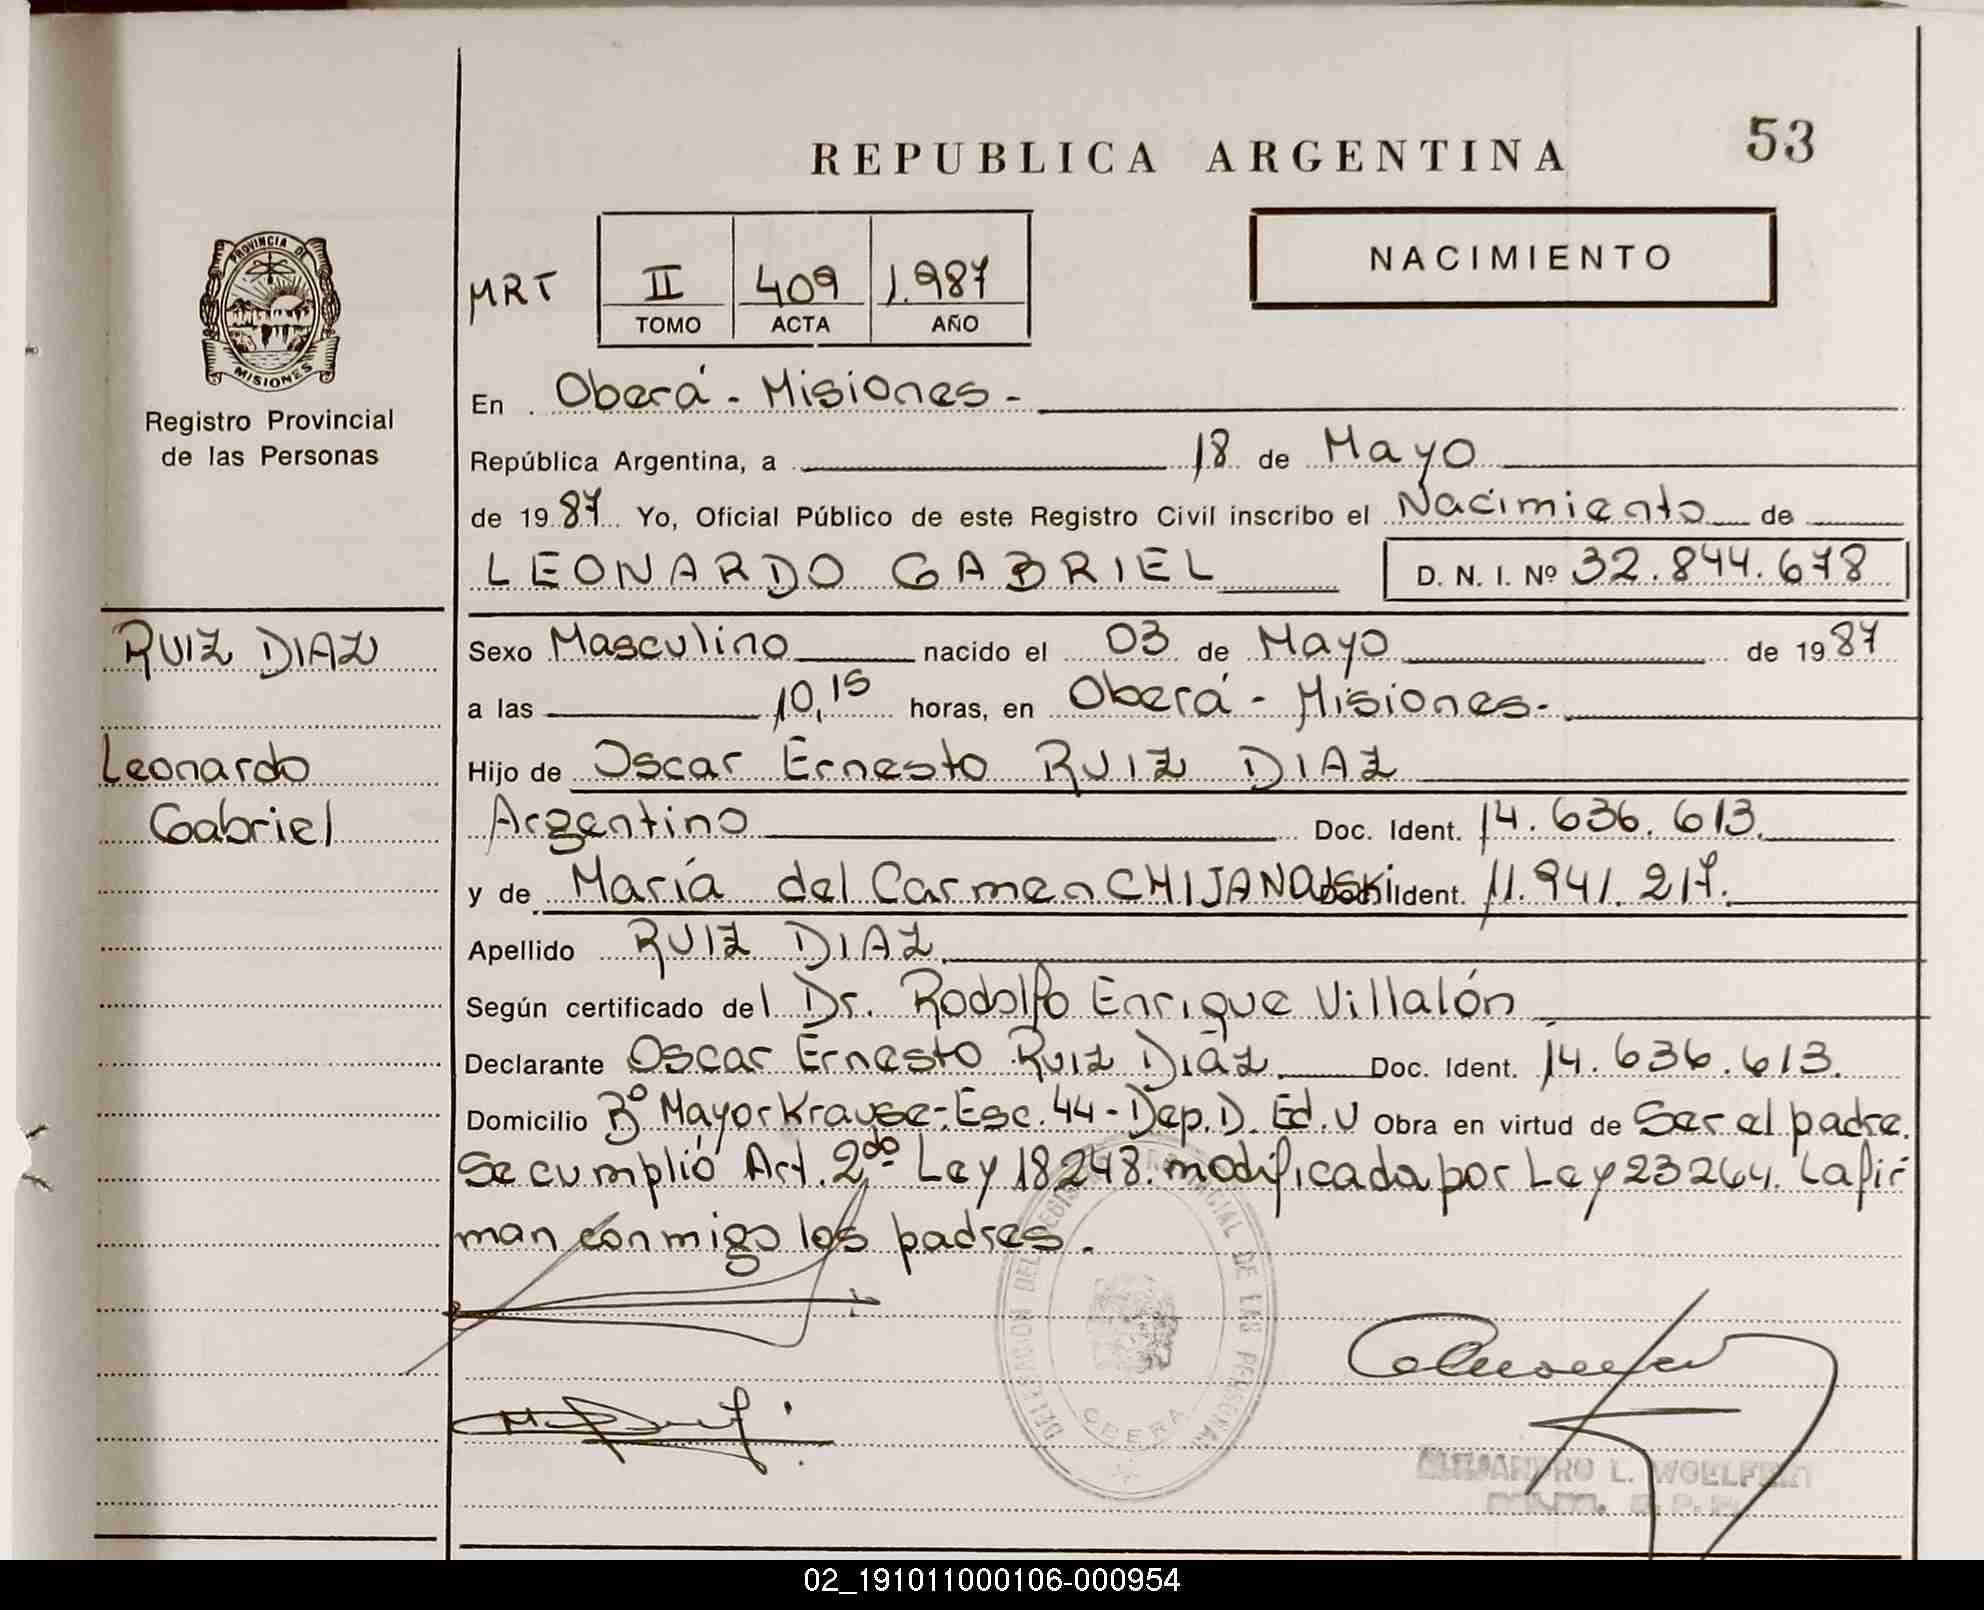 REPUBLICA ARGENTINA
53
NACIMIENTO
MRT
II 409 1.987
TOMO ACTA AÑO
PROVINCIA DE
MISIONES
Registro Provincial
de las Personas
En Oberá - Misiones -
República Argentina, a 18 de Mayo
de 1987 Yo, Oficial Público de este Registro Civil inscribo el Nacimiento de
LEONARDO GABRIEL D. N. I. Nº 32.844.678
RUIZ DIAZ
Leonardo
Gabriel
Sexo Masculino nacido el 03 de Mayo de 1987
a las 10,15 horas, en Oberá - Misiones-
Hijo de Oscar Ernesto RUIZ DIAZ
Argentino Doc. Ident. 14.636.613.
y de María del Carmen CHIJANOWSKI Doc. Ident. 11.941.217.
Apellido RUIZ DIAZ
Según certificado del Dr. Rodolfo Enrique Villalón
Declarante Oscar Ernesto Ruiz Diáz Doc. Ident. 14.636.613.
Domicilio Bº Mayor Krause-Esc. 44-Dep.D. Ed. U Obra en virtud de Ser el padre.
Se cumplió Art. 2do Ley 18248. modificada por Ley 23264. La fir
man conmigo los padres.
DELEGACION DEL REGISTRO PROVINCIAL DE LAS PERSONAS
OBERA
L. WOELFERT
02_191011000106-000954